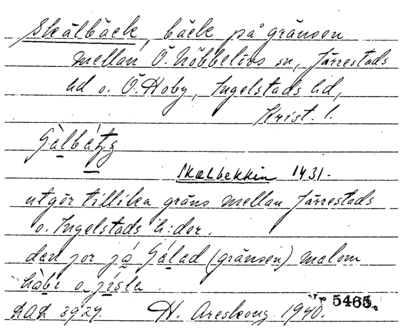 Skälbäck, bäck på gränsen
mellan Ö. Nöbbelövs sn, Järrestads
hd o. Ö. Hoby, Ingelstads hd,
Krist. l.
Gàlbátʒ
Skælbekkin 1431.
utgör tillika gräns mellan Järrestads
o. Ingelstads h:der.
dan jor já Gálad (gränsen) malom
hàbi o jisla
LAL 3929. H. Areskoug. 1940.
Nr 5465.